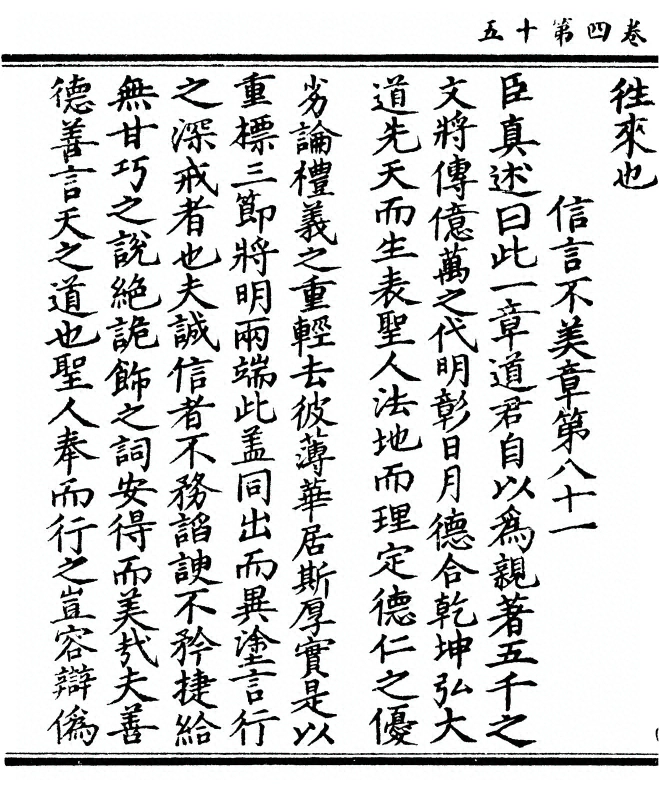 卷四第十五
徃來也
信言不美章第八十一
臣真述曰此一章道君自以爲親著五千之
文將傳億萬之代明彰日月德合乾坤弘大
道先天而生表聖人法地而理定德仁之優
劣論禮義之重輕去彼薄華居斯厚實是以
重標三節將明兩端此盖同出而異塗言行
之深戒者也夫誠信者不務謟諛不矜捷給
無甘巧之說絶詭飾之詞安得而美㢤夫善
德善言天之道也聖人奉而行之豈容辯僞